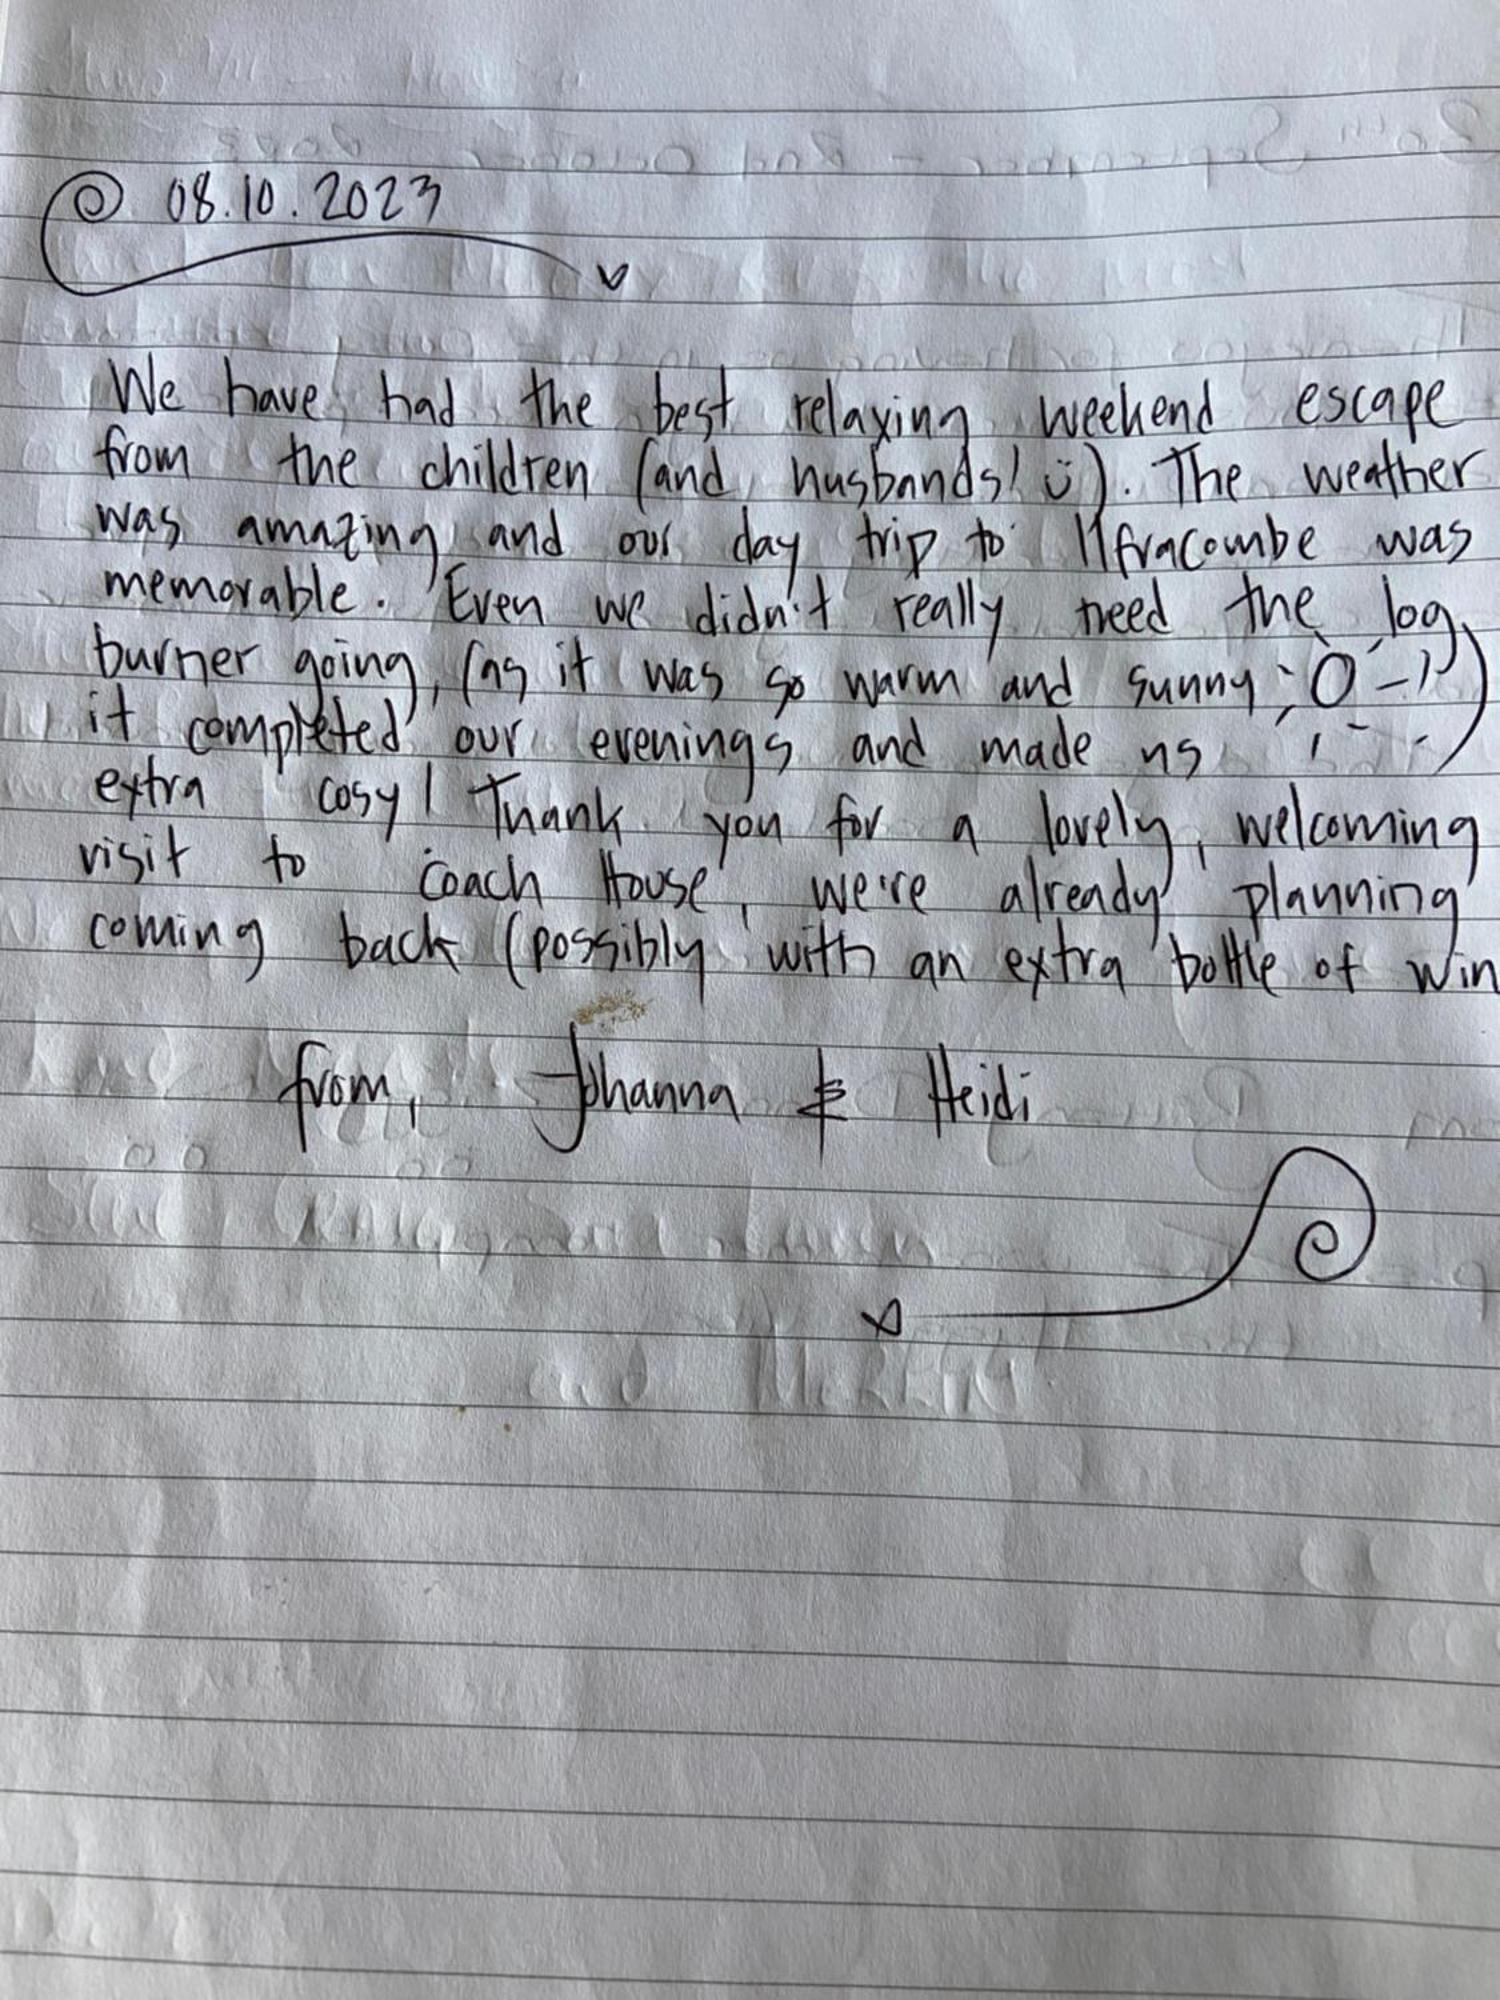 08.10.2023
We have had the best relaxing weekend escape
from the children (and husbands! ü). The weather
was amazing and our day trip to Ilfracombe was
memorable. Even we didn't really need the log
burner going, (as it was so warm and sunny )
it completed our evenings and made us
extra cosy! Thank you for a lovely, welcoming
visit to Coach House, we're already planning
coming back (possibly with an extra bottle of win
from, Johanna & Heidi